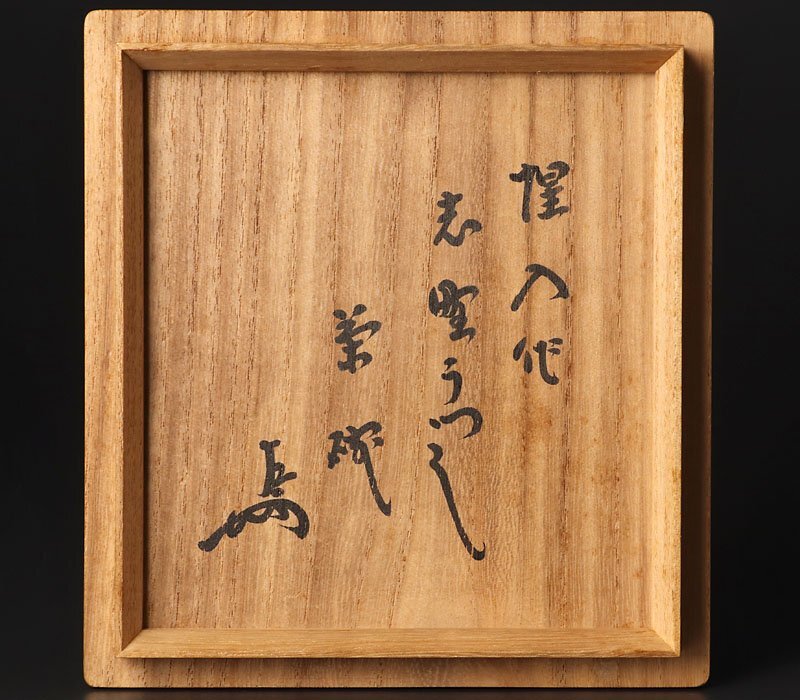 惺入作
志野うつし
茶碗